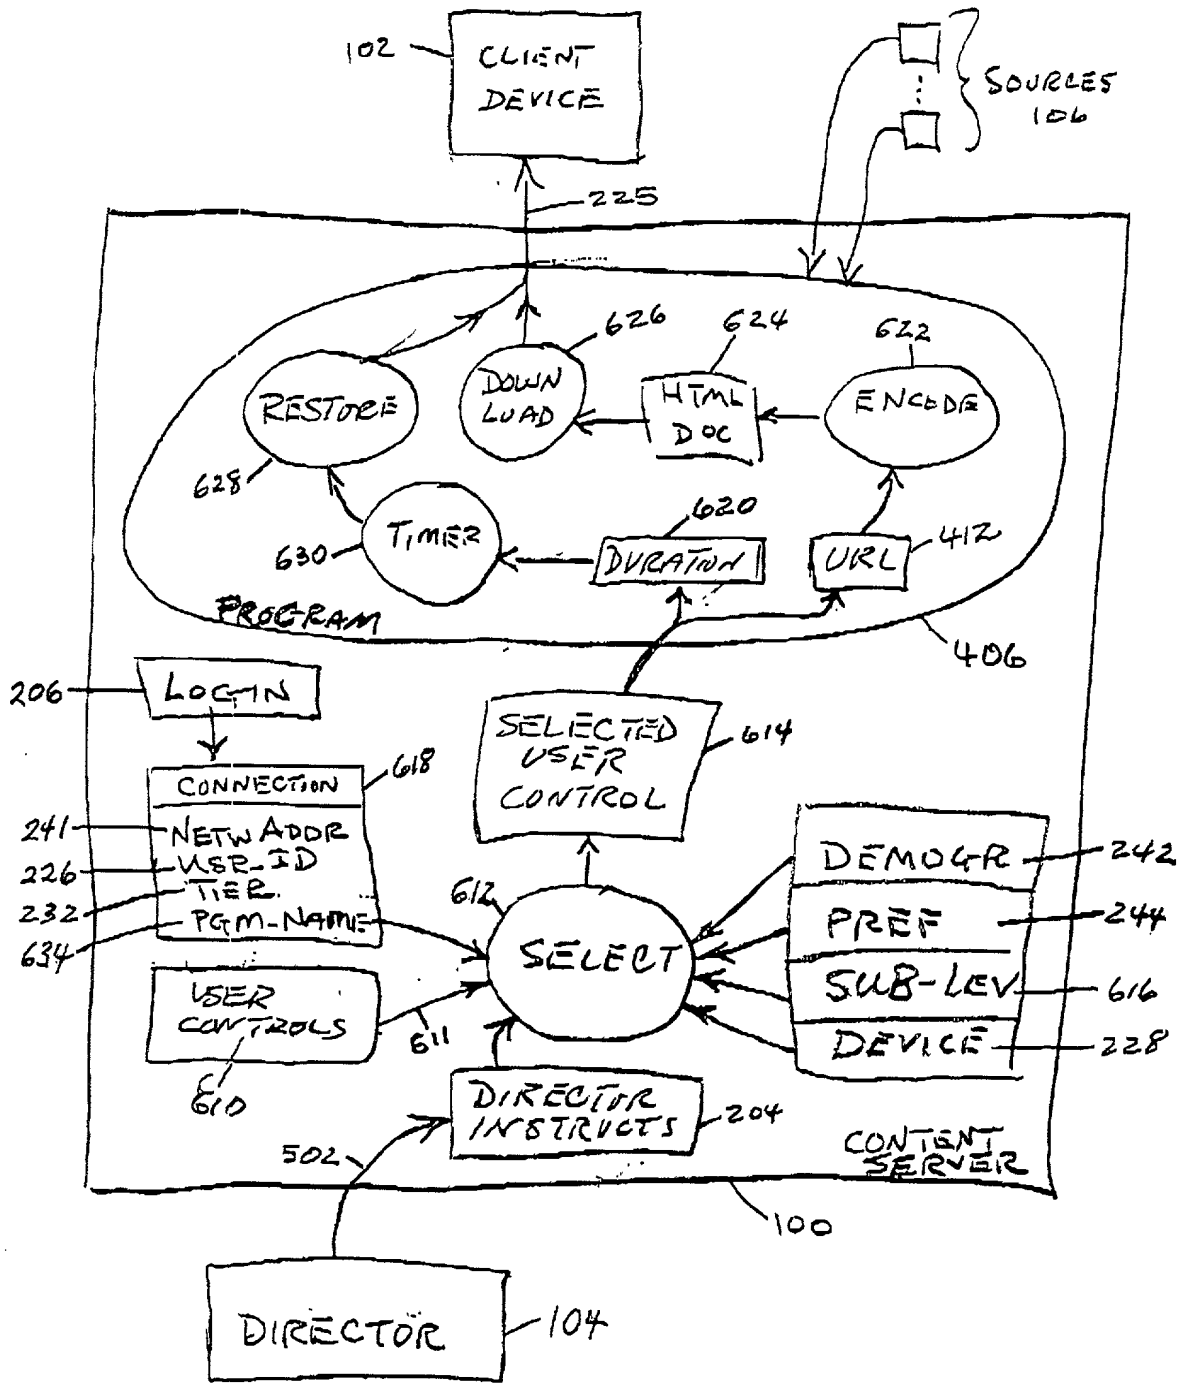 102
CLIENT
DEVICE
SOURCES
106
225
626
624
622
RESTORE
DOWN
LOAD
HTML
DOC
ENCODE
628
620
630
TIMER
DURATION
URL
412
PROGRAM
406
206
LOGIN
SELECTED
USER
CONTROL
614
618
CONNECTION
241
NETW ADDR
226
USR-ID
232
TIER
634
PGM-NAME
612
SELECT
DEMOGR
242
PREF
244
SUB-LEV
616
DEVICE
228
USER
CONTROLS
610
611
DIRECTOR
INSTRUCTS
204
502
CONTENT
SERVER
100
DIRECTOR
104